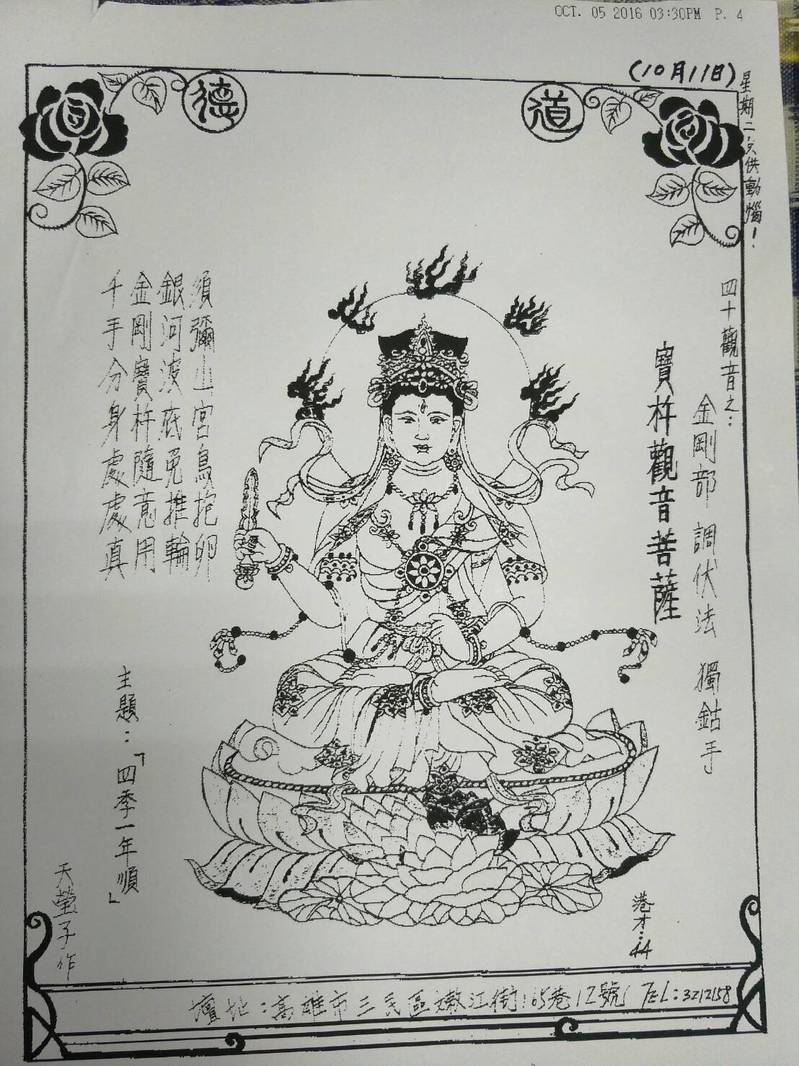 OCT. 05 2016 03:30PM P. 4
(10月11日)
星期二,只供動惱!
道
德
四十觀音之:
金剛部 調伏法 獨鈷手
寶杵觀音菩薩
須彌山宮鳥抱卵
銀河波底兔推輪
金剛寶杵隨意用
千手分身處處真
主題:「四季一年順」
天瑩子作
港才:44
壇址:高雄市三民區嫩江街65巷12號 TEL:3212158